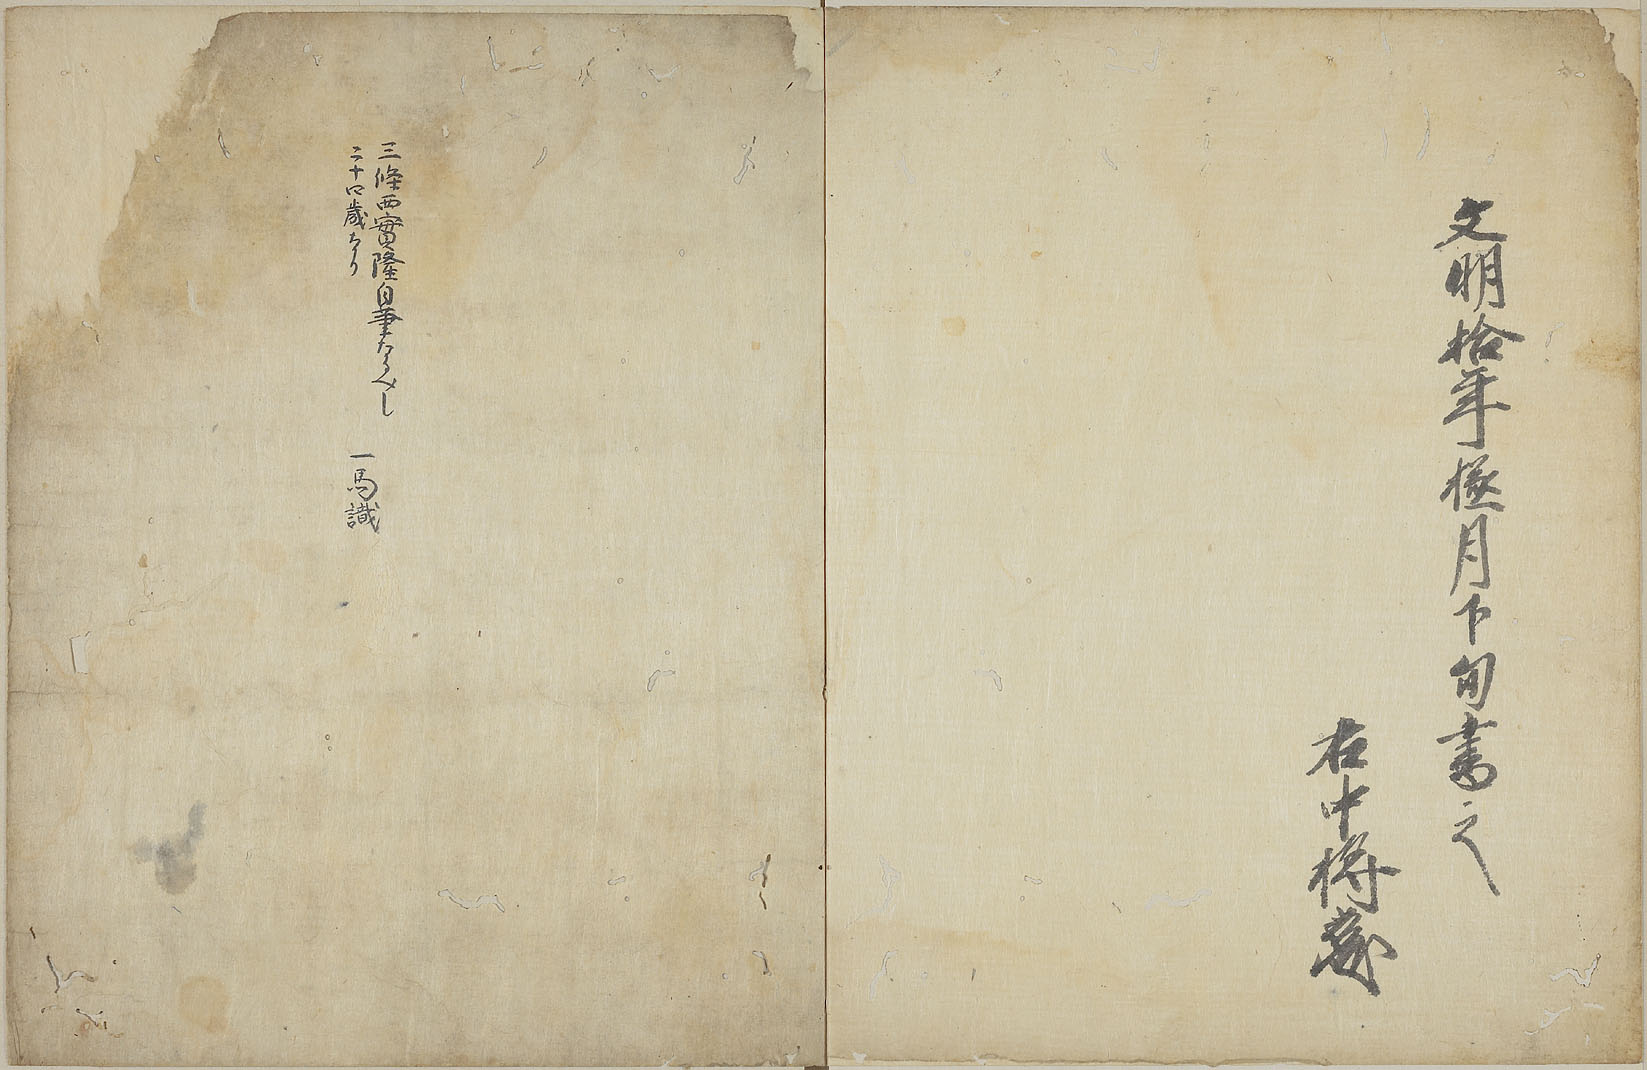 文明拾年極月下旬書之
右中将
三條西實隆自筆なるへし
二十四歳なり
一馬識